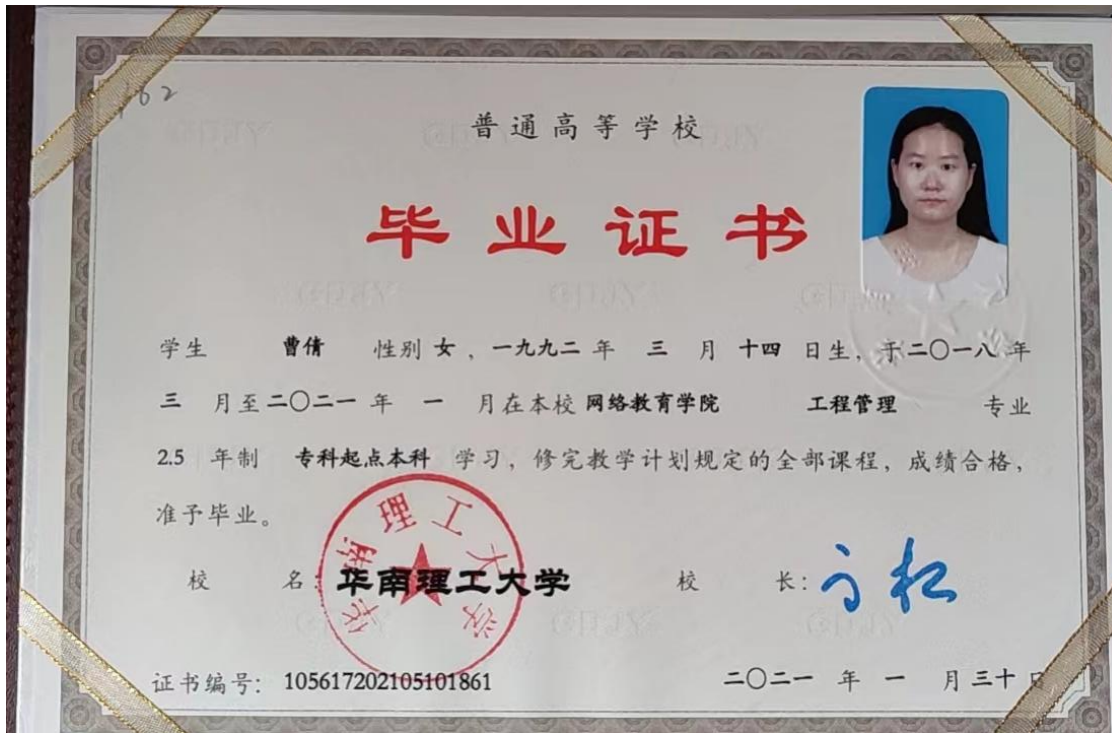 162
普通高等学校
毕业证书
学生 曹倩 性别 女 ，一九九二 年 三 月 十四 日生，于二〇一八 年
三 月至二〇二一 年 一 月在本校 网络教育学院 工程管理 专业
2.5 年制 专科起点本科 学习，修完教学计划规定的全部课程，成绩合格，
准予毕业。
校 名：华南理工大学 校 长：
华南理工大学
证书编号：105617202105101861 二〇二一 年 一 月 三十 日